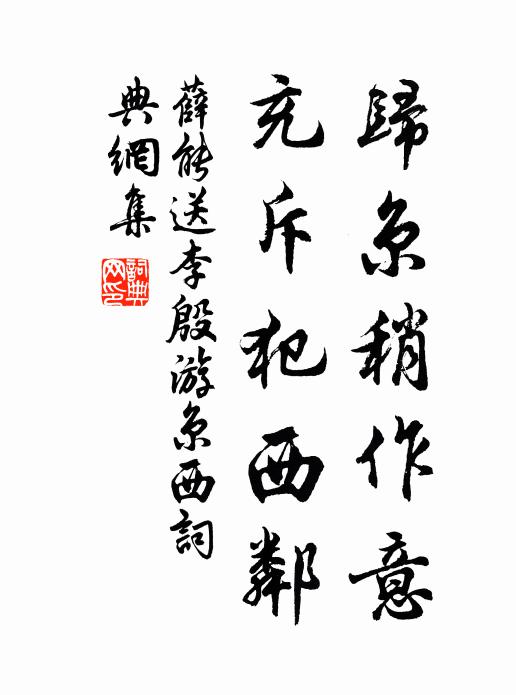 歸京稍作意
充斥犯西鄰
薛能送李殷游京西詞
典網集
詞典网印